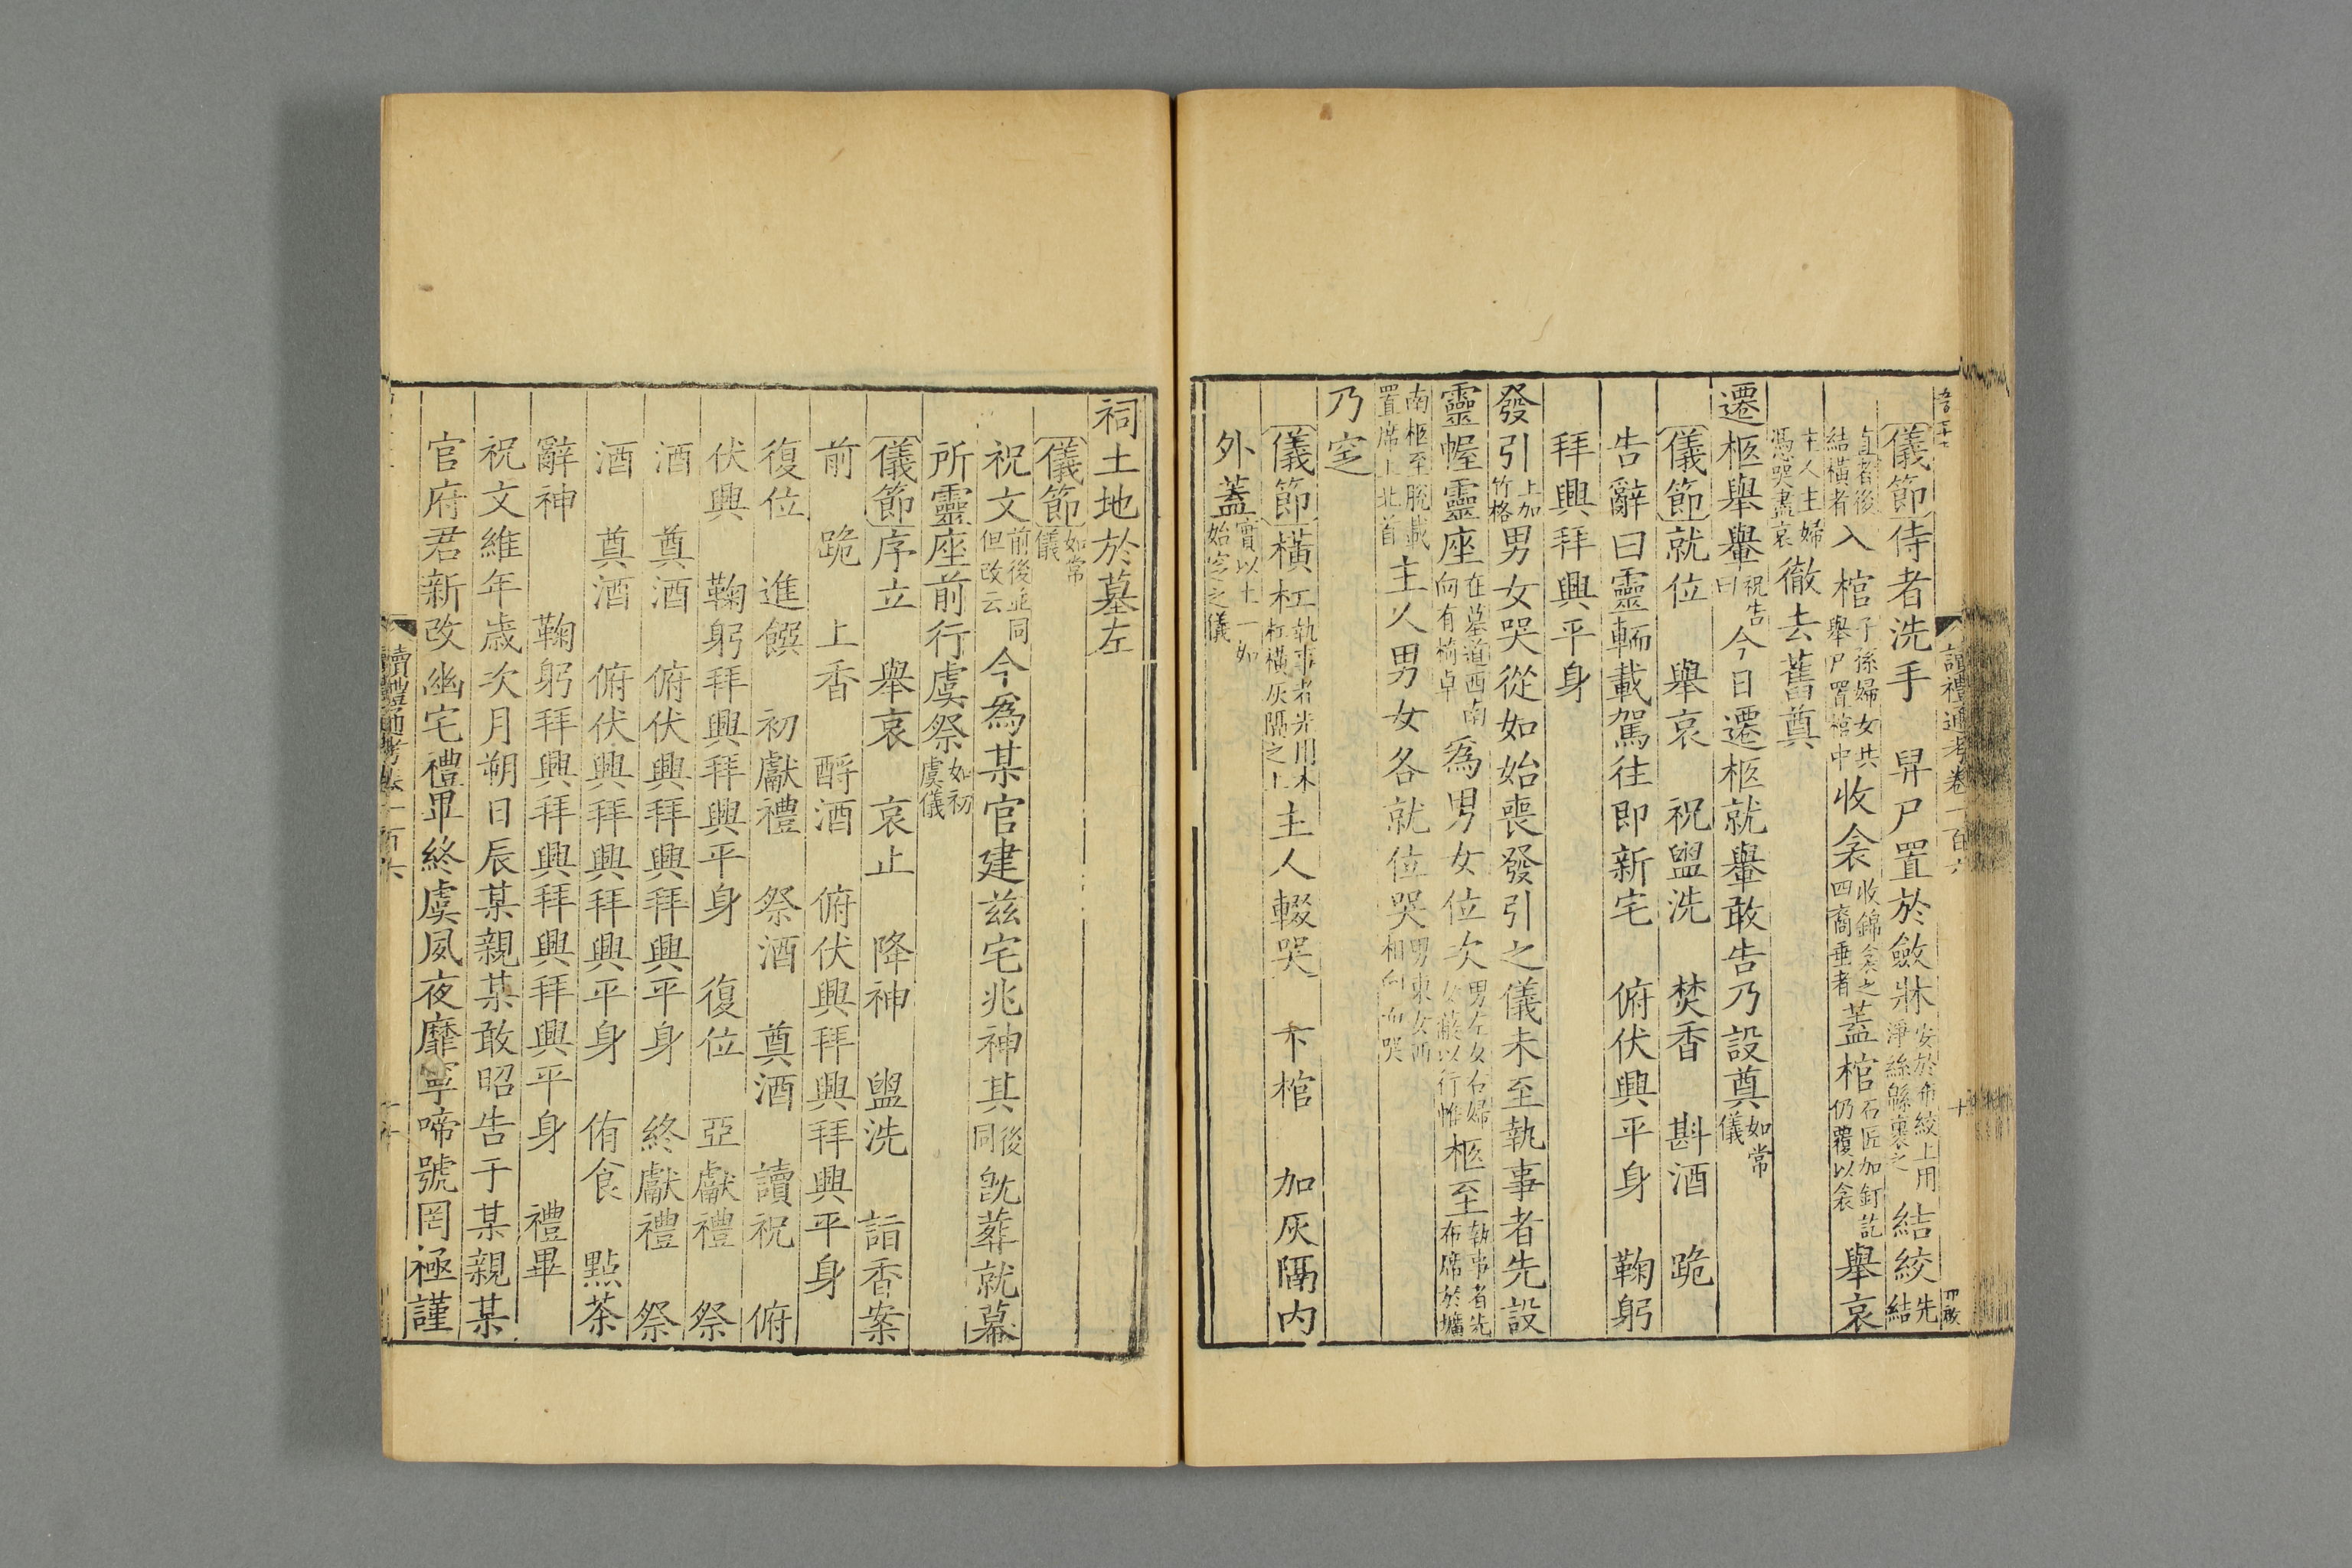 讀禮通考卷一百六
十
儀節侍者洗手　舁尸置於斂牀安於布絞上用淨絲緜裹之結絞先結
直者後結橫者入棺子孫婦女共舉尸置棺中收衾收錦衾之四裔垂者蓋棺石匠加釘訖仍覆以衾舉哀
主人主婦憑哭盡哀徹去舊奠
遷柩舉轝祝告曰今日遷柩就轝敢告乃設奠如常儀
儀節就位　舉哀　祝盥洗　焚香　斟酒　跪
告辭曰靈輀載駕往即新宅　俯伏興平身　鞠躬
拜興拜興平身
發引上加竹格男女哭從如始喪發引之儀未至執事者先設
靈幄靈座在墓道西南向有椅卓為男女位次男左女右婦女蔽以行帷柩至執事者先布席於壙
南柩至脫載置席上北首主人男女各就位哭男東女西相向而哭
乃窆
儀節橫杠執事者先用木杠橫灰隔之上主人輟哭　下棺　加灰隔内
外蓋實以土一如始窆之儀
祠土地於墓左
儀節如常儀
祝文前後並同但改云今為某官建茲宅兆神其後同旣葬就幕
所靈座前行虞祭如初虞儀
儀節序立　舉哀　哀止　降神　盥洗　詣香案
前　跪　上香　酹酒　俯伏興拜興拜興平身
復位　進饌　初獻禮　祭酒　奠酒　讀祝　俯
伏興　鞠躬拜興拜興平身　復位　亞獻禮　祭
酒　奠酒　俯伏興拜興拜興平身　終獻禮　祭
酒　奠酒　俯伏興拜興拜興平身　侑食　點茶
辭神　鞠躬拜興拜興拜興拜興平身　禮畢
祝文維年歲次月朔日辰某親某敢昭告于某親某
官府君新改幽宅禮畢終虞夙夜靡寧啼號罔極謹
讀禮通考卷一百六